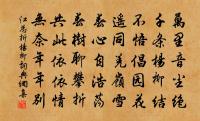 萬里音塵絕
千条楊柳結
不悟倡園花
遥同羌嶺雪
春心自浩蕩
春樹聊攀折
共此依依情
無奈年年別
江总折楊柳詞典網集